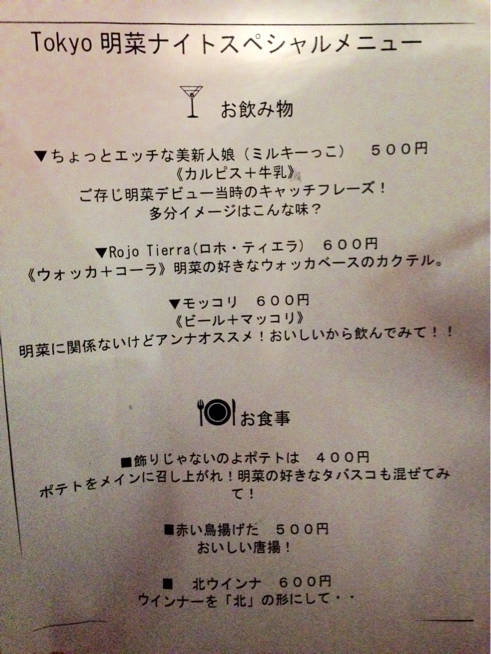 Tokyo 明菜ナイトスペシャルメニュー
お飲み物
▼ちょっとエッチな美新人娘（ミルキーっこ）　５００円
《カルピス＋牛乳》
ご存じ明菜デビュー当時のキャッチフレーズ！
多分イメージはこんな味？
▼Rojo Tierra(ロホ・ティエラ)　６００円
《ウォッカ＋コーラ》明菜の好きなウォッカベースのカクテル。
▼モッコリ　６００円
《ビール＋マッコリ》
明菜に関係ないけどアンナオススメ！おいしいから飲んでみて！！
お食事
■飾りじゃないのよポテトは　４００円
ポテトをメインに召し上がれ！明菜の好きなタバスコも混ぜてみ
て！
■赤い鳥揚げた　５００円
おいしい唐揚！
■　北ウインナ　６００円
ウインナーを「北」の形にして・・